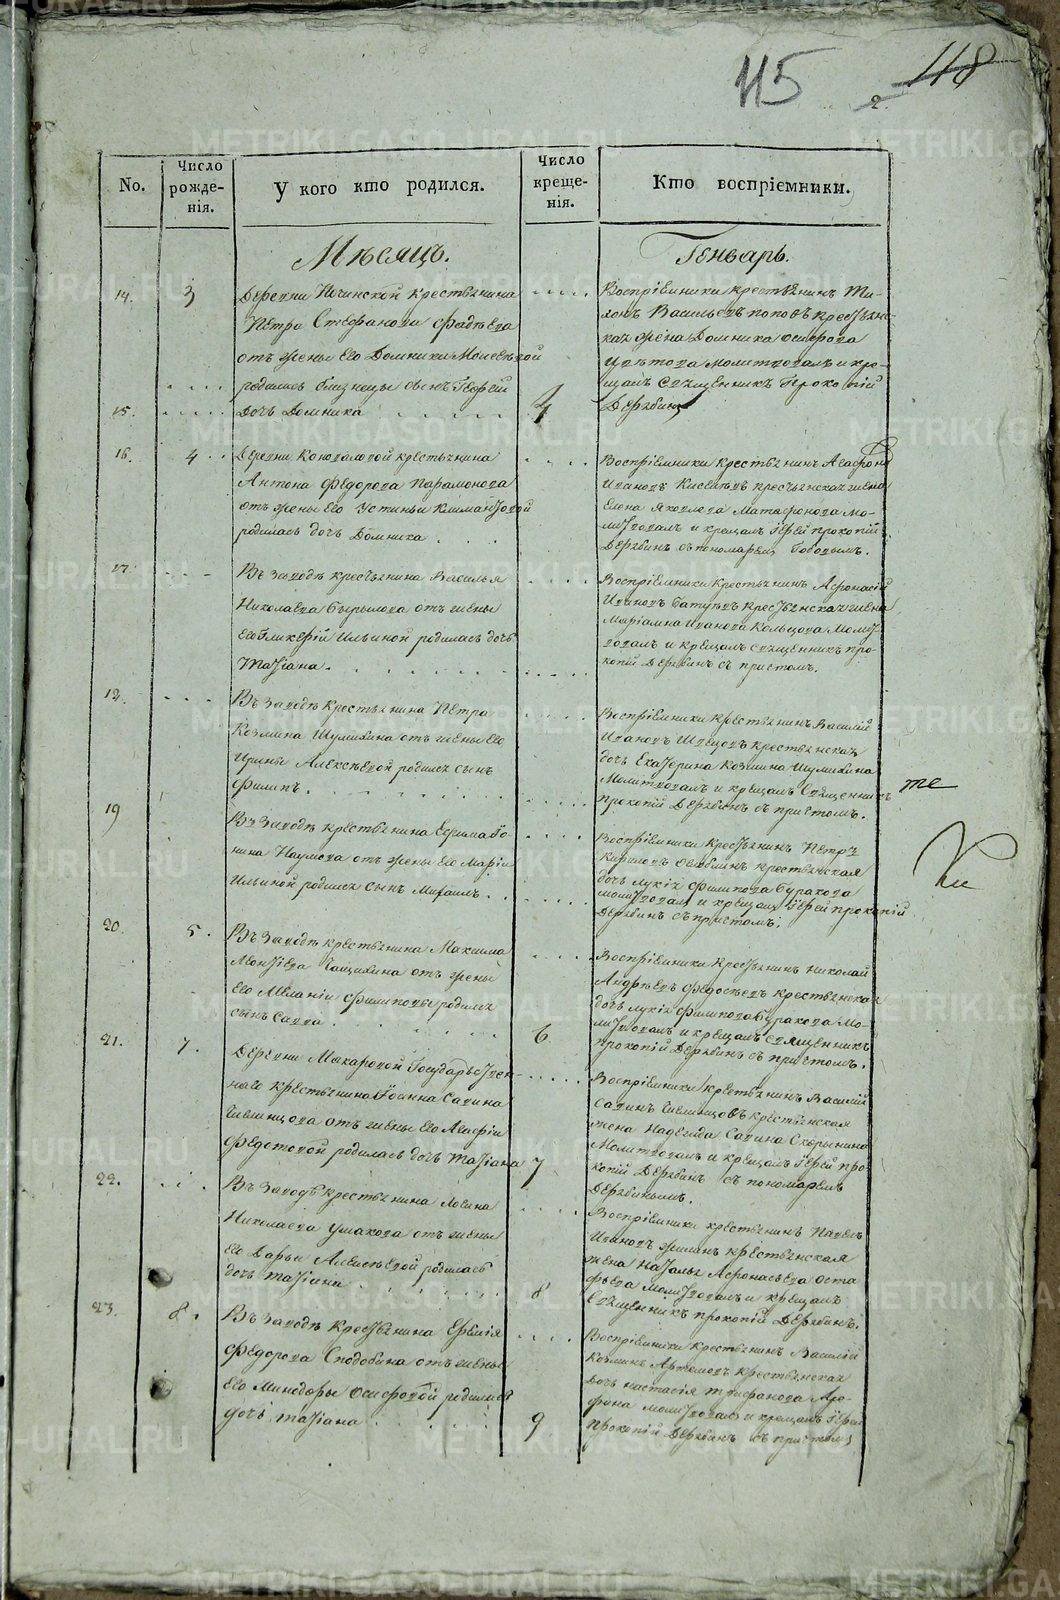 115
118
2.
No.
Число рожде-нія.
У кого кто родился.
Число креще-нія.
Кто воспріемники.
Мѣсяцъ.
Генварь.
14.
3
Деревни крестьянина
Петра Стефанова Фадѣева
отъ жены его Домники Моисеевой
родились близнецы сынъ Георгій
15.
Дочь Домника
4
Воспріемники крестьянинъ
Васильевъ Поповъ крестьянс-
кая жена Домника Осипова
молитвовалъ и кре-
щалъ Священникъ Прокопій
Дерябинъ
16.
4
Деревни Коноваловой крестьянина
Антона Федорова Парамонова
отъ жены его Устиньи
родилась дочь Домника
Воспріемники крестьянинъ Агафонъ
Ивановъ Киселевъ крестьянская жена
Елена Яковлева Матафонова мо-
литвовалъ и крещалъ Іерей Прокопій
Дерябинъ съ пономаремъ
17.
Въ заводѣ крестьянина Василья
Николаева отъ жены
его Гликеріи Ильиной родилась дочь
Татіана
Воспріемники крестьянинъ Афонасій
Ивановъ крестьянская жена
Маріамна Иванова Кольцова молит-
вовалъ и крещалъ священникъ Про-
копій Дерябинъ съ причтомъ.
18.
Въ заводѣ крестьянина Петра
Козмина Шумихина отъ жены его
Ирины Алексѣевой родился сынъ
Филипъ
Воспріемники крестьянинъ Василій
Ивановъ Швецовъ крестьянская
дочь Екатерина Козмина Шумихина
молитвовалъ и крещалъ Священникъ
Прокопій Дерябинъ съ причтомъ.
19
Въ заводѣ крестьянина Ефима
Наумова отъ жены его Маріи
Ильиной родился сынъ Михаилъ
Воспріемники крестьянинъ Петръ
Кириловъ крестьянская
дочь Лукія Филипова Буракова
молитвовалъ и крещалъ Іерей Прокопій
Дерябинъ съ причтомъ.
20.
5
Въ заводѣ крестьянина Максима
Леонтіева отъ жены
его Меланіи Филиповы родился
сынъ Савва
6
Воспріемники крестьянинъ Николай
Андрѣевъ Федосѣевъ крестьянская
дочь Лукія Филипова Буракова мо-
литвовалъ и крещалъ священникъ
Прокопій Дерябинъ съ причтомъ.
21.
7.
Деревни Макаровой Государствен-
наго крестьянина Іоанна Савина
отъ жены его Агафіи
Федотовой родилась дочь Татіана
7
Воспріемники крестьянинъ Василій
Савинъ крестьянская
жена Надежда Савина
молитвовалъ и крещалъ Іерей Про-
копій Дерябинъ съ пономаремъ
Дерябинымъ.
22.
Въ заводѣ крестьянина Логина
Николаева Ушакова отъ жены
его Дарьи Алексѣевой родилась
дочь Татіана
8
Воспріемники крестьянинъ Павелъ
Ивановъ крестьянская
жена Наталья Афонасьева Оста-
фьева молитвовалъ и крещалъ
Священникъ Прокопій Дерябинъ.
23.
8.
Въ заводѣ крестьянина Еремія
Федорова Сподобина отъ жены
его Минодоры Осиповой родилась
дочь Татіана
9
Воспріемники крестьянинъ Василій
Козминъ Артемовъ крестьянская
дочь Настасія Трифанова
молитвовалъ и крещалъ Іерей
Прокопій Дерябинъ съ причтомъ